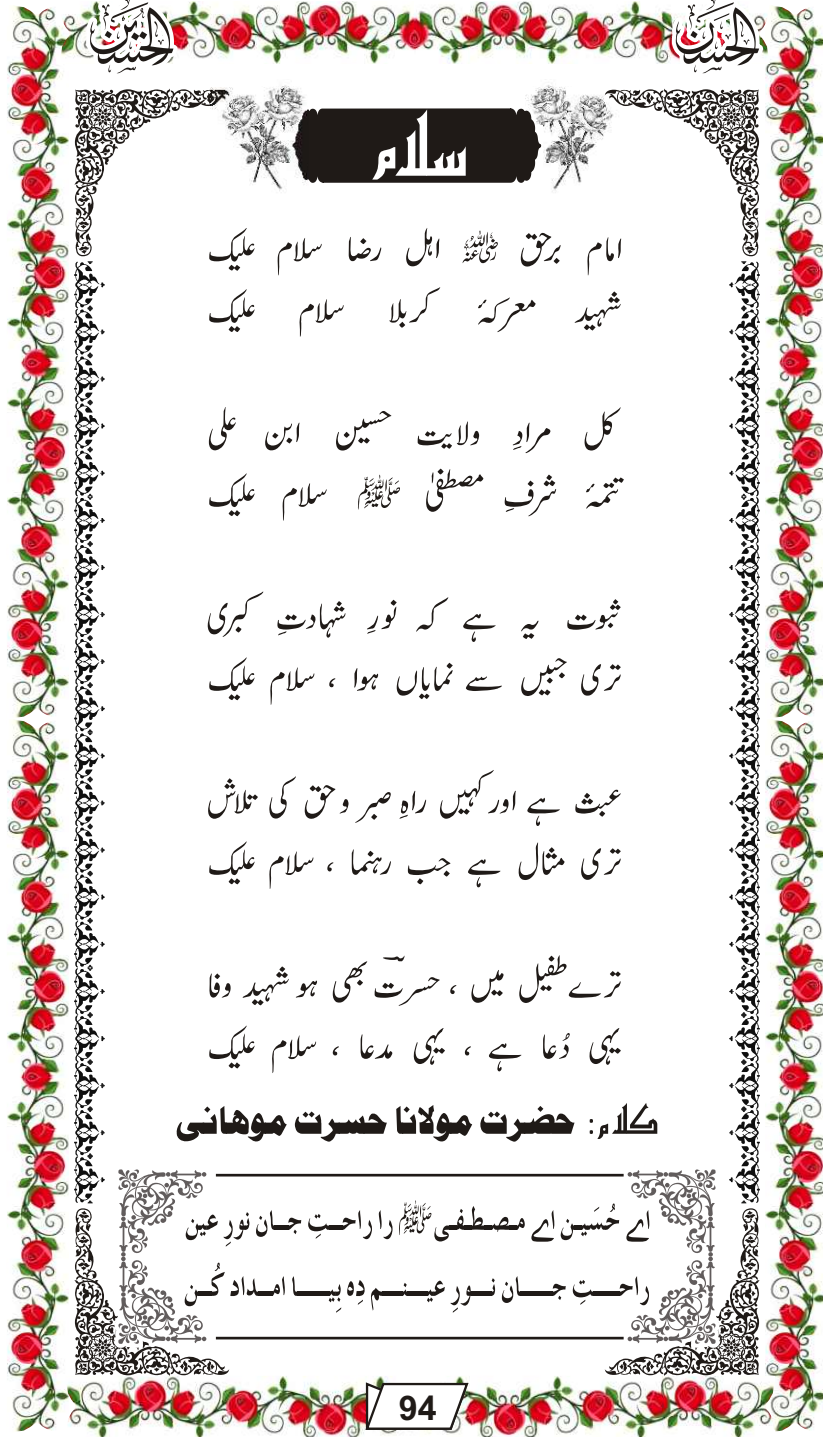 الحسین الحسن
سلام
امام برحق رضی اللہ عنہ اہل رضا سلام علیک
شہید معرکۂ کربلا سلام علیک
کل مرادِ ولایت حسین ابن علی
تتمۂ شرفِ مصطفیٰ ﷺ سلام علیک
ثبوت یہ ہے کہ نورِ شہادتِ کبری
تری جبیں سے نمایاں ہوا ، سلام علیک
عبث ہے اور کہیں راہِ صبر و حق کی تلاش
تری مثال ہے جب رہنما ، سلام علیک
ترے طفیل میں ، حسرتؔ بھی ہو شہید وفا
یہی دُعا ہے ، یہی مدعا ، سلام علیک
کلام: حضرت مولانا حسرت موهانی
اے حُسَین اے مصطفی ﷺ را راحتِ جان نورِ عین
راحتِ جان نورِ عینم دِہ بِیا امداد کُن
94